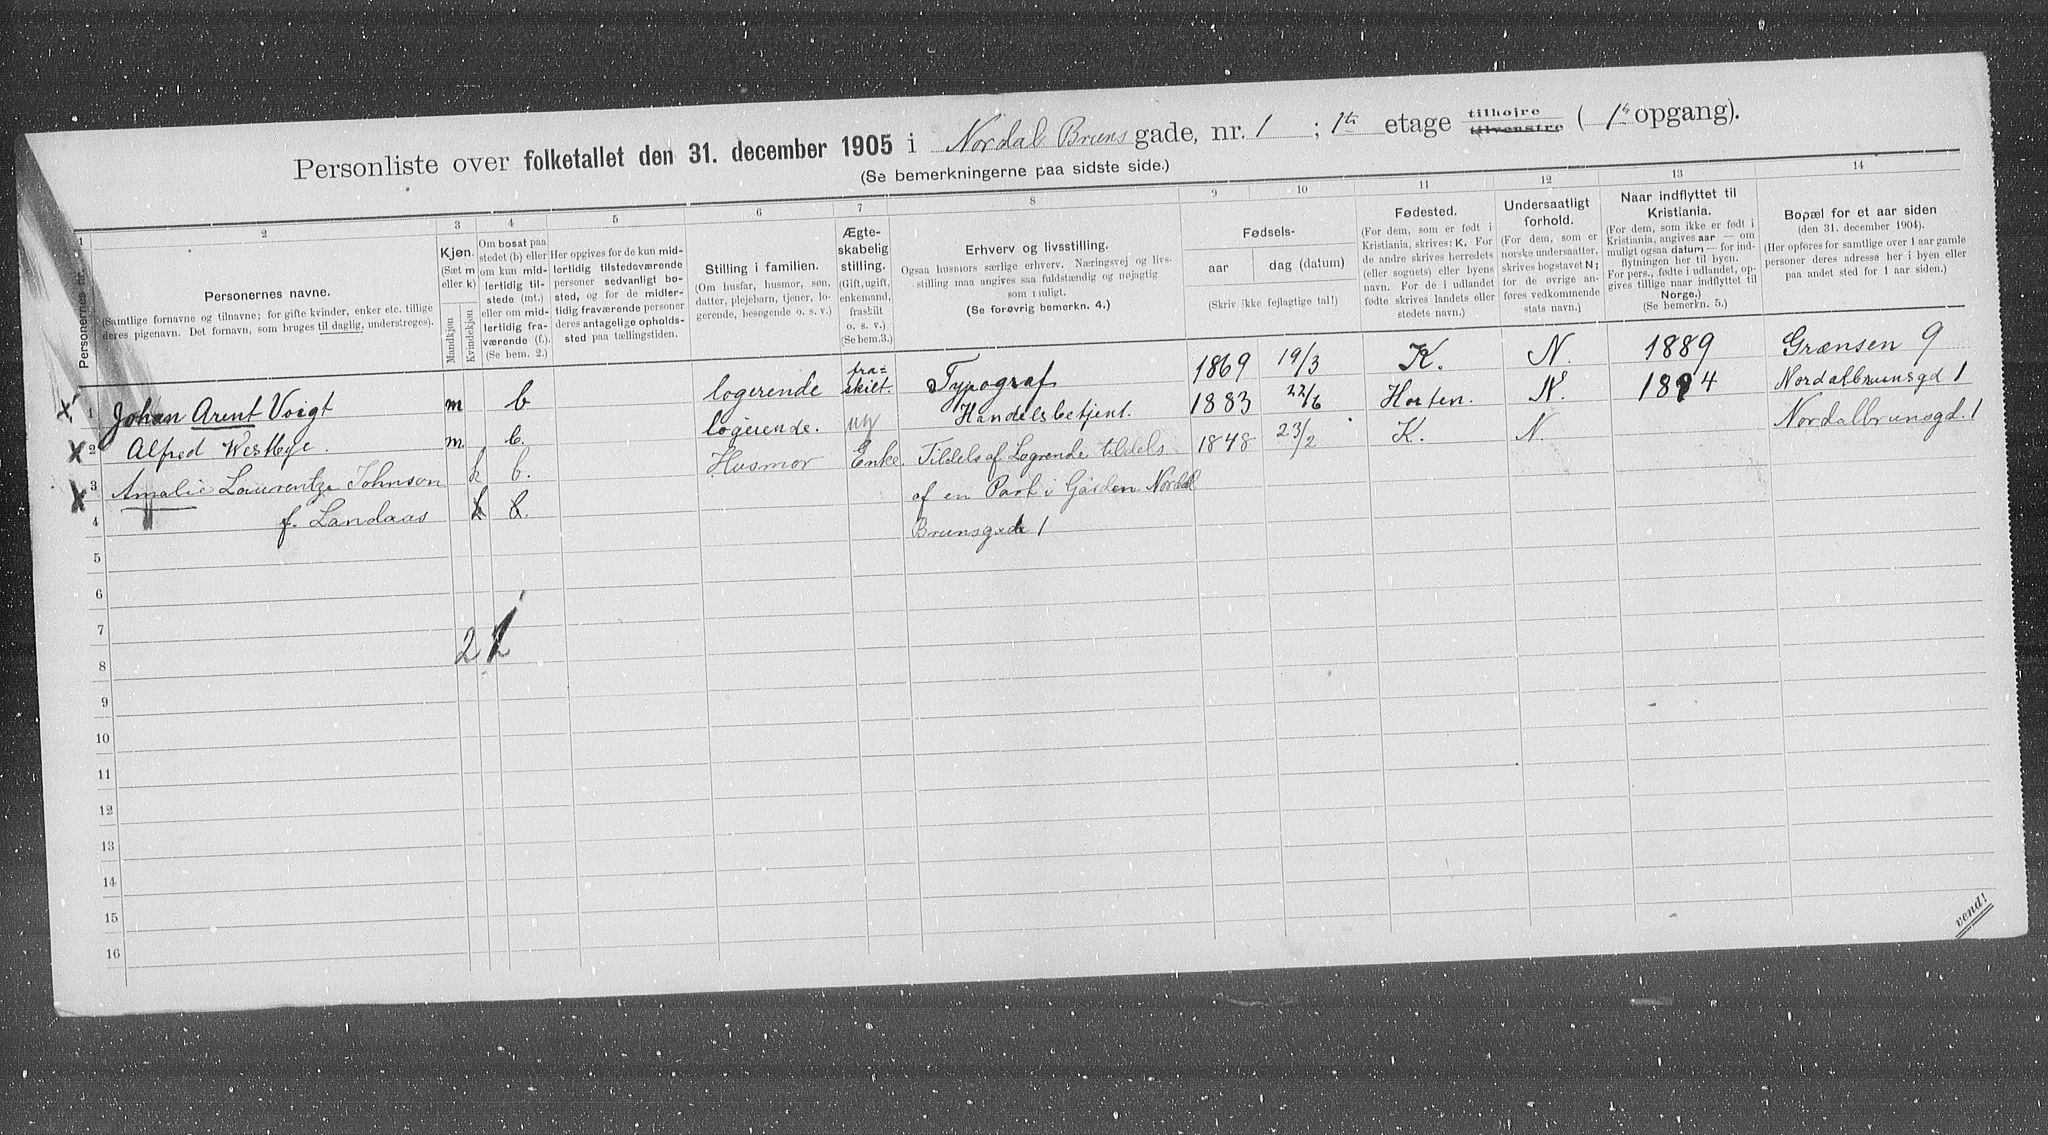 Personliste over folketallet den 31. december 1905 i Nordal Bruns gade, nr. 1 ; 1ste etage tilhøjre tilvenstre ( 1ste opgang).
(Se bemerkningerne paa sidste side.)
1 2 3 4 5 6 7 8 9 10 11 12 13 14
Personernes nr.
Personernes navne.
(Samtlige fornavne og tilnavne; for gifte kvinder, enker etc. tillige
deres pigenavn. Det fornavn, som bruges til daglig, understreges).
Kjøn.
(Sæt m
eller k)
Mandkjøn
Kvindekjøn
Om bosat paa
stedet (b) eller
om kun mid-
lertidig til-
stede (mt.)
eller om mid-
lertidig fra-
værende (f.).
(Se bem. 2.)
Her opgives for de kun mid-
lertidig tilstedeværende
personer sedvanligt bo-
sted, og for de midler-
tidig fraværende personer
deres antagelige opholds-
sted paa tællingstiden.
Stilling i familien.
(Om husfar, husmor, søn,
datter, plejebarn, tjener, lo-
gerende, besøgende o. s. v.)
Ægte-
skabelig
stilling.
(Gift, ugift,
enkemand,
fraskilt
o. s. v.)
(Se bem.3.)
Erhverv og livsstilling.
Ogsaa husmors særlige erhverv. Næringsvej og livs-
stilling maa angives saa fuldstændig og nøjagtig
som muligt.
(Se forøvrig bemerkn. 4.)
Fødsels-
aar
dag (datum)
(Skriv ikke fejlagtige tal!)
Fødested.
(For dem, som er født i
Kristiania, skrives: K. For
de andre skrives herredets
(eller sognets) eller byens
navn. For de i udlandet
fødte skrives landets eller
stedets navn.)
Undersaatligt
forhold.
(For dem, som er
norske undersaatter,
skrives bogstavet N;
for de øvrige an-
føres vedkommende
stats navn.)
Naar indflyttet til
Kristiania.
(For dem, som ikke er født i
Kristiania, angives aar — om
muligt ogsaa datum — for ind-
flytningen her til byen.
For pers., fødte i udlandet, op-
gives tillige naar indflyttet til
Norge.)
(Se bemerkn. 5.)
Bopæl for et aar siden
(den 31. december 1904).
(Her opføres for samtlige over 1 aar gamle
personer deres adresse her i byen eller
paa andet sted for 1 aar siden.)
x 1 Johan Arent Voigt m b logerende fra=skilt. Typograf 1869 19/3 K. N. 1889 Grænsen 9
x 2 Alfred Westbye. m b. logerende. ug Handelsbetjent. 1883 22/6 Horten. N. 1894 Nordalbrunsgd 1
x 3 Amalie Laurentze Johnson k b. Husmor Enke. Tildels af Logrende tildels 1848 23/2 K. N. Nordalbrunsgd. 1
4 f. Landaas k b. af en Part i Gården Nordal
5 Brunsgade 1
6
7
2 1
8
9
10
11
12
13
14
15
16
vend!